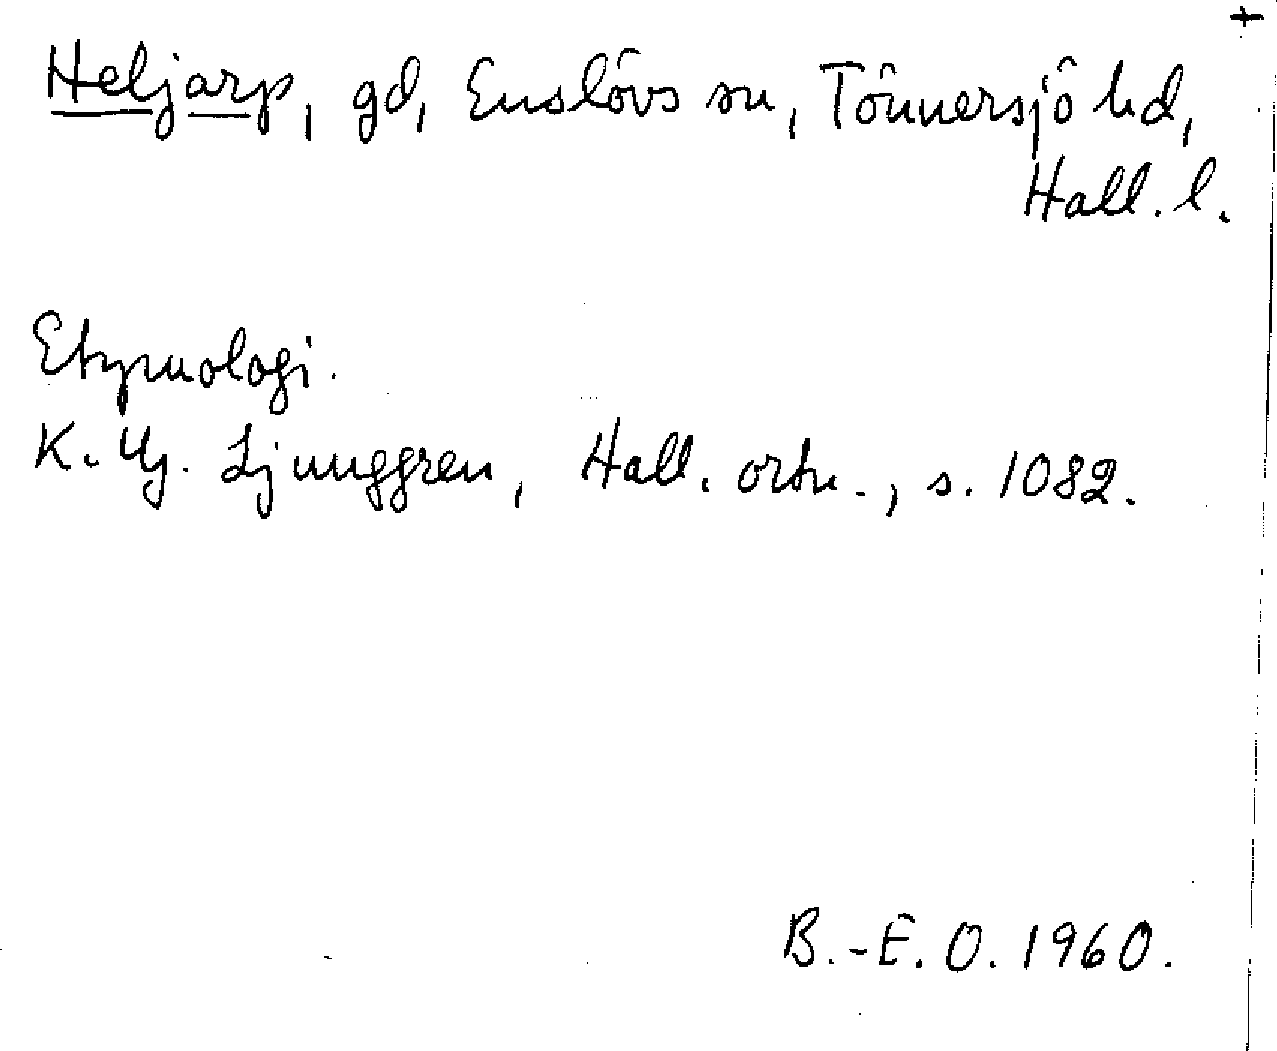 +
Heljarp, gd, Enslövs sn, Tönnersjö hd,
Hall. l.
Etymologi.
K. Hj. Ljunggren, Hall. ortn., s. 1082.
B.-E. O. 1960.